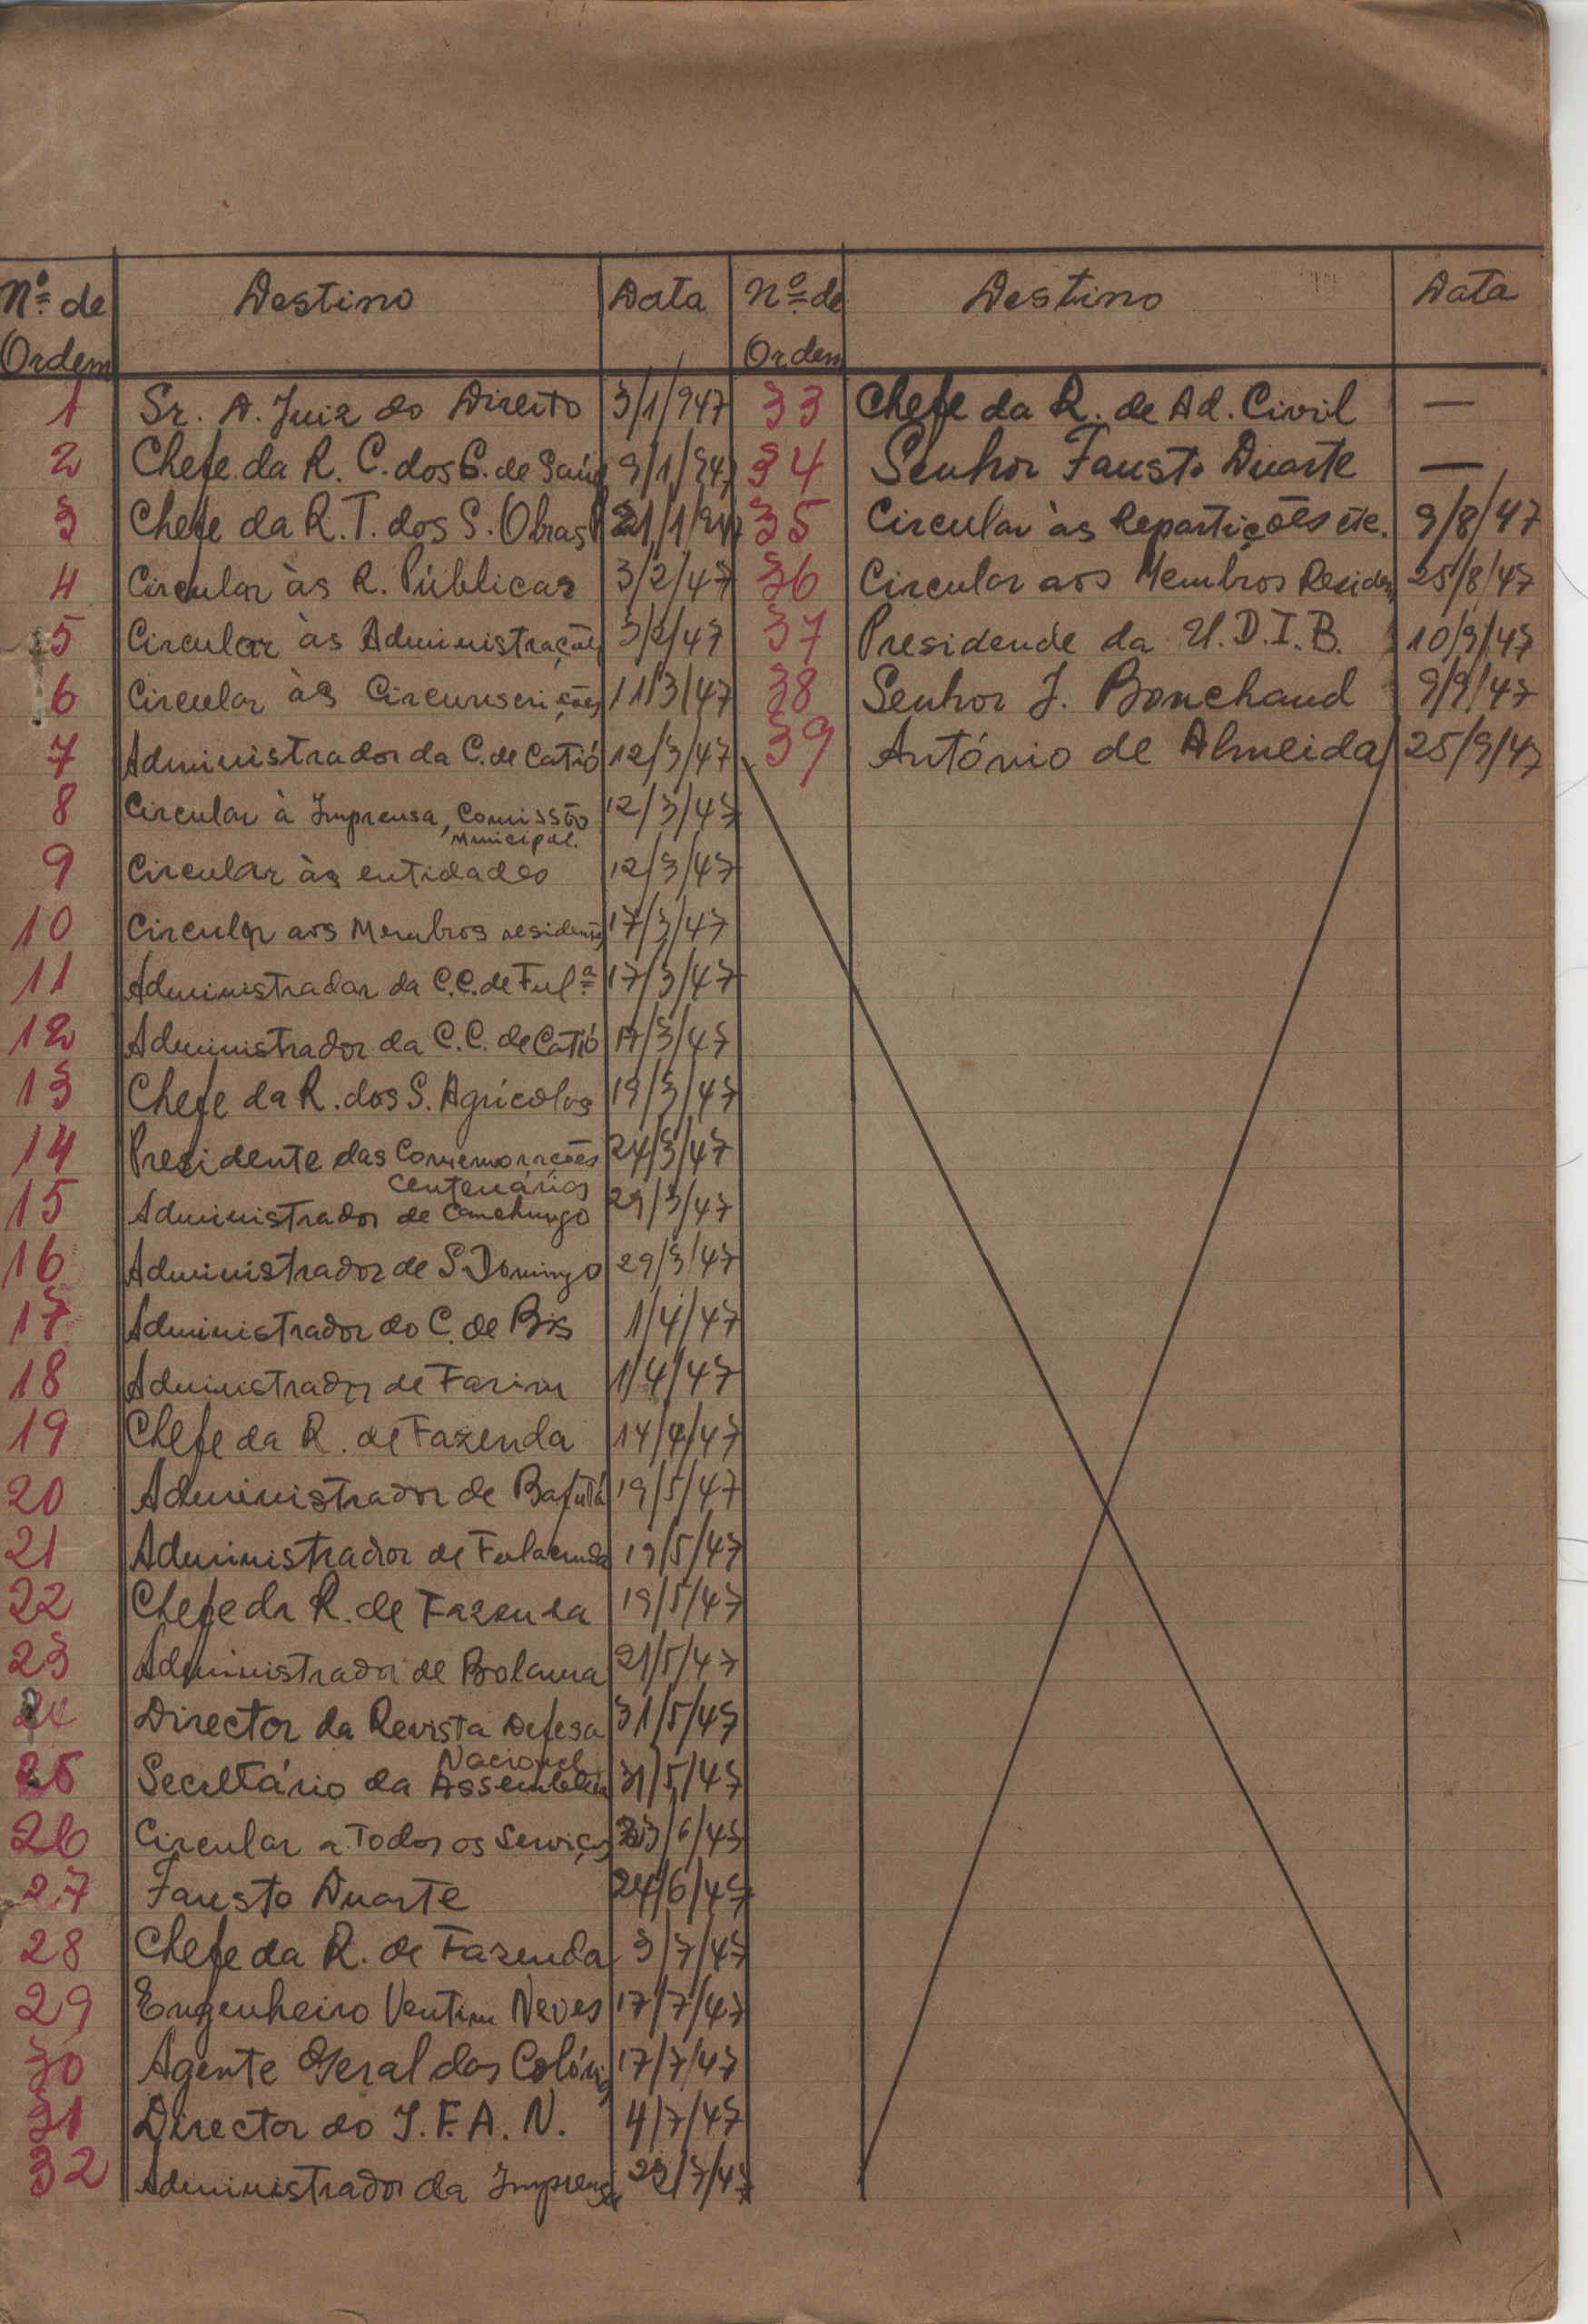 Nº de Ordem Destino Data Nº de Ordem Destino Data
1 Sr. A. Juiz do Direito 3/1/947
2 Chefe da R. C. dos S. de Saúde 9/1/947
3 Chefe da R. T. dos S. Obras P 21/1/947
4 Circular às R. Públicas 3/2/47
5 Circular às Administrações 3/2/47
6 Circular às Circunscrições 11/3/47
7 Administrador da C. de Catió 12/3/47
8 Circular à Imprensa, Comissão 12/3/47
Municipal.
9 Circular às entidades 12/3/47
10 Circular aos Membros residentes 17/3/47
11 Administrador da C.C. de Ful.ª 17/3/47
12 Administrador da C.C. de Catió 17/3/47
13 Chefe da R. dos S. Agrícolas 19/3/47
14 Presidente das Comemorações 24/3/47
Centenários
15 Administrador de Canchungo 29/3/47
16 Administrador de S. Domingo 29/3/47
17 Administrador do C. de Bis 1/4/47
18 Administrador de Farim 1/4/47
19 Chefe da R. de Fazenda 14/4/47
20 Administrador de Bafatá 19/5/47
21 Administrador de Fulacunda 19/5/47
22 Chefe da R. de Fazenda 19/5/47
23 Administrador de Bolama 21/5/47
24 Director da Revista Defesa 31/5/47
Nacional
25 Secretário da Assembleia 31/5/47
26 Circular a Todos os Serviços 23/6/47
27 Fausto Duarte 24/6/47
28 Chefe da R. de Fazenda 3/7/47
29 Engenheiro Ventim Neves 17/7/47
30 Agente Geral das Colónias 17/7/47
31 Director do I.F.A.N. 4/7/47
32 Administrador da Imprensa 29/7/47
33 Chefe da R. de Ad. Civil —
34 Senhor Fausto Duarte —
35 Circular às Repartições etc. 9/8/47
36 Circular aos Membros Residen 25/8/47
37 Presidende da U.D.I.B. 10/9/47
38 Senhor J. Bouchaud 9/9/47
39 António de Almeida 25/9/47